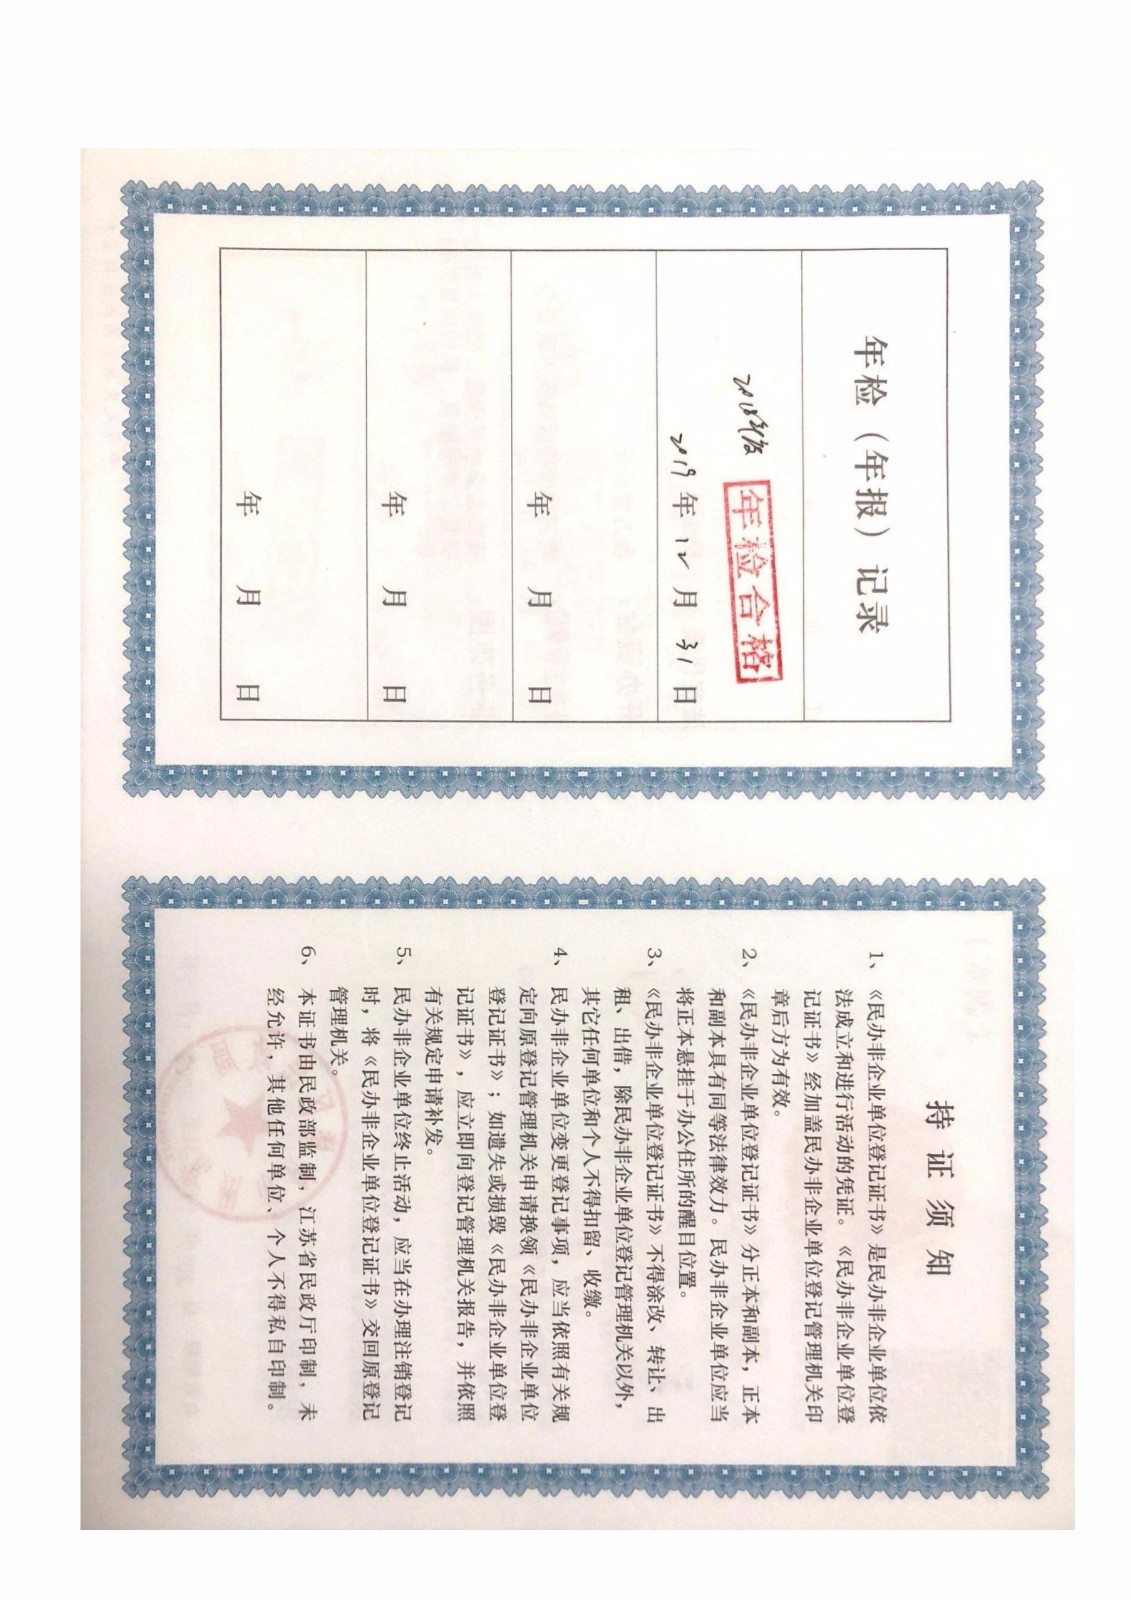 年检（年报）记录
2018年度 年检合格
2019年12月31日
年 月 日
年 月 日
年 月 日
持证须知
1、《民办非企业单位登记证书》是民办非企业单位依
法成立和进行活动的凭证。《民办非企业单位登
记证书》经加盖民办非企业单位登记管理机关印
章后方为有效。
2、《民办非企业单位登记证书》分正本和副本，正本
和副本具有同等法律效力。民办非企业单位应当
将正本悬挂于办公住所的醒目位置。
3、《民办非企业单位登记证书》不得涂改、转让、出
租、出借，除民办非企业单位登记管理机关以外，
其它任何单位和个人不得扣留、收缴。
4、民办非企业单位变更登记事项，应当依照有关规
定向原登记管理机关申请换领《民办非企业单位
登记证书》；如遗失或损毁《民办非企业单位登
记证书》，应立即向登记管理机关报告，并依照
有关规定申请补发。
5、民办非企业单位终止活动，应当在办理注销登记
时，将《民办非企业单位登记证书》交回原登记
管理机关。
6、本证书由民政部监制，江苏省民政厅印制，未
经允许，其他任何单位、个人不得私自印制。